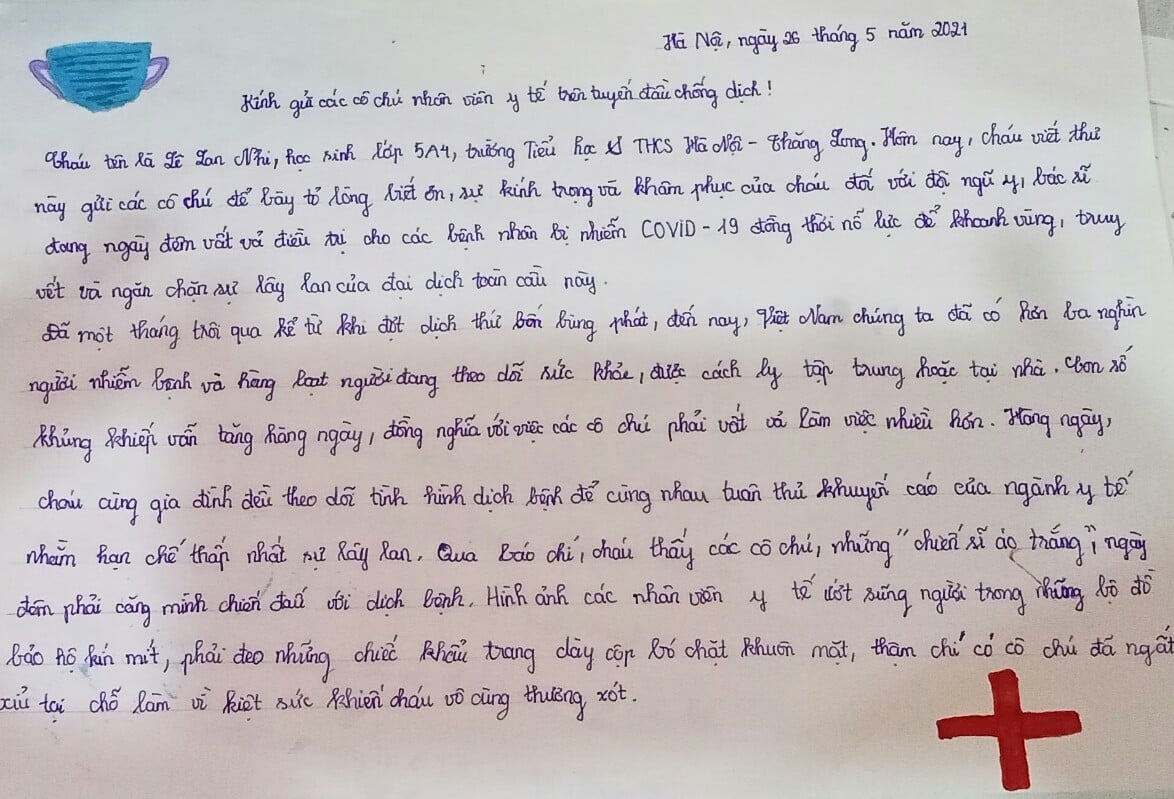 Hà Nội, ngày 26 tháng 5 năm 2021
Kính gửi các cô chú nhân viên y tế trên tuyến đầu chống dịch!
Cháu tên là Lê Lan Nhi, học sinh lớp 5A4, trường Tiểu học & THCS Hà Nội - Thăng Long. Hôm nay, cháu viết thư
này gửi các cô chú để bày tỏ lòng biết ơn, sự kính trọng và khâm phục của cháu đối với đội ngũ y, bác sĩ
đang ngày đêm vất vả điều trị cho các bệnh nhân bị nhiễm COVID - 19 đồng thời nỗ lực để khoanh vùng, truy
vết và ngăn chặn sự lây lan của đại dịch toàn cầu này.
Đã một tháng trôi qua kể từ khi đợt dịch thứ bốn bùng phát, đến nay, Việt Nam chúng ta đã có hơn ba nghìn
người nhiễm bệnh và hàng loạt người đang theo dõi sức khỏe, được cách ly tập trung hoặc tại nhà. Con số
khủng khiếp vẫn tăng hàng ngày, đồng nghĩa với việc các cô chú phải vất vả làm việc nhiều hơn. Hàng ngày,
cháu cùng gia đình đều theo dõi tình hình dịch bệnh để cùng nhau tuân thủ khuyến cáo của ngành y tế
nhằm hạn chế thấp nhất sự lây lan. Qua báo chí, cháu thấy các cô chú, những "chiến sĩ áo trắng", ngày
đêm phải căng mình chiến đấu với dịch bệnh. Hình ảnh các nhân viên y tế ướt sũng người trong những bộ đồ
bảo hộ kín mít, phải đeo những chiếc khẩu trang dày cộp bó chặt khuôn mặt, thậm chí có cô chú đã ngất
xỉu tại chỗ làm vì kiệt sức khiến cháu vô cùng thương xót.